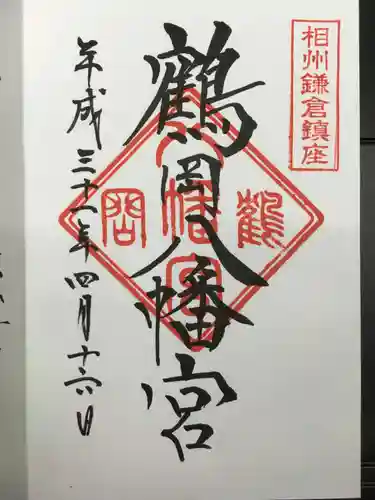 相州鎌倉鎮座
鶴岡八幡宮
鶴岡八幡宮
平成三十一年四月十六日